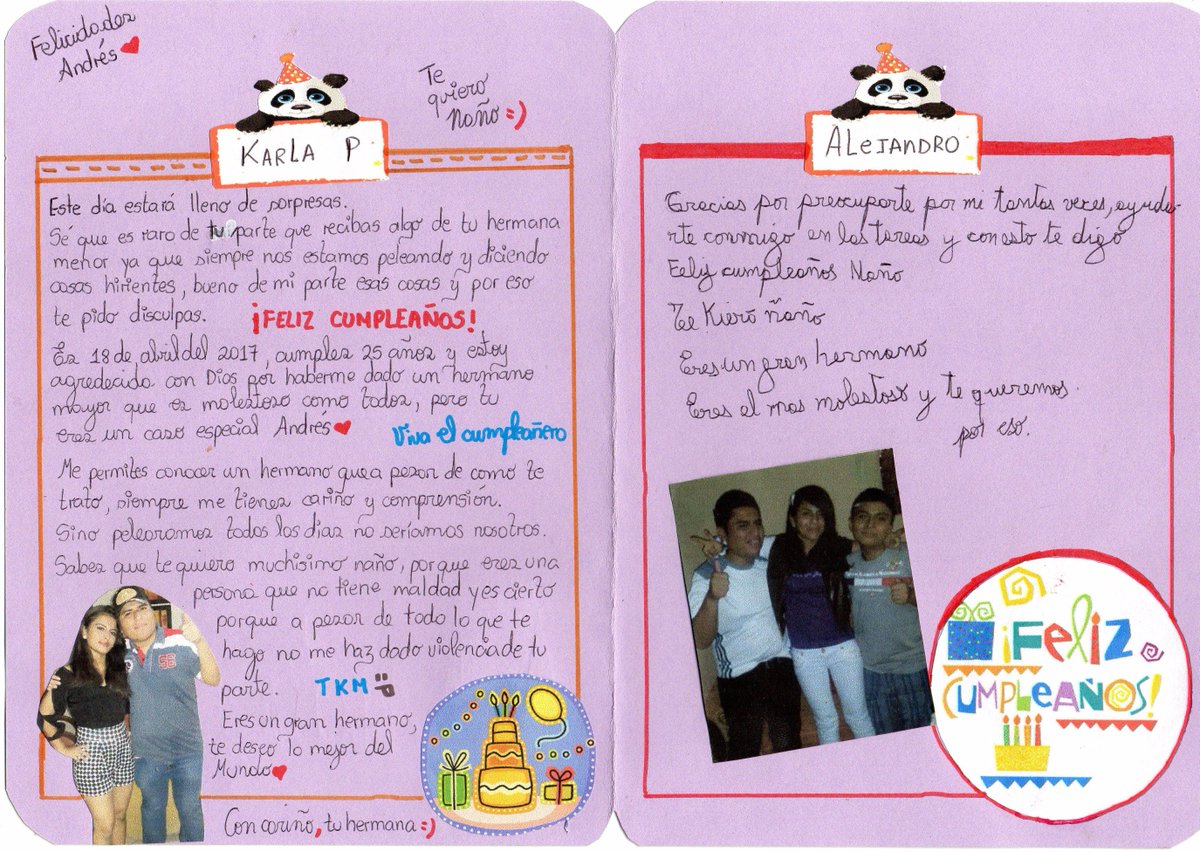 Felicidadez
Andrés
Te
quiero
Ñaño =)
KARLA P
Este día estará lleno de sorpresas.
Sé que es raro de tu parte que recibas algo de tu hermana
menor ya que siempre nos estamos peleando y diciendo
cosas hirientes, bueno de mi parte esas cosas y por eso
te pido disculpas. ¡FELIZ CUMPLEAÑOS!
Ez 18 de abril del 2017, cumplez 25 añoz y estoy
agredecida con Dios por haberme dado un hermano
mayor que ez molestozo como todoz, pero tu
erez un cazo especial Andrés
Viva el cumpleañero
Me permites conocer un hermano que a pezar de como te
trato, siempre me tienez cariño y comprensión.
Sino pelearamoz todos los diaz no seríamos nosotros.
Sabez que te quiero muchisimo ñaño, porque erez una
persona que no tiene maldad y es cierto
porque a pezar de todo lo que te
hago no me haz dado violencia de tu
parte. TKM
Eres un gran hermano,
te deseo lo mejor del
Mundo
Con cariño, tu hermana =)
ALEJANDRO
Gracias por preocuparte por mi tantas veces, ayuda-
rte conmigo en las tareas y con esto te digo
Feliz cumpleaños Ñaño
Te Kiero ñaño
Eres un gran hermano
Eres el mas molestoso y te queremos
por eso.
¡Feliz
CUMPLEAÑOS!